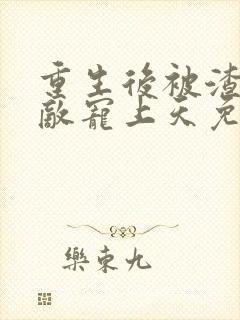 重生後被渣
敵寵上天免
樂東九